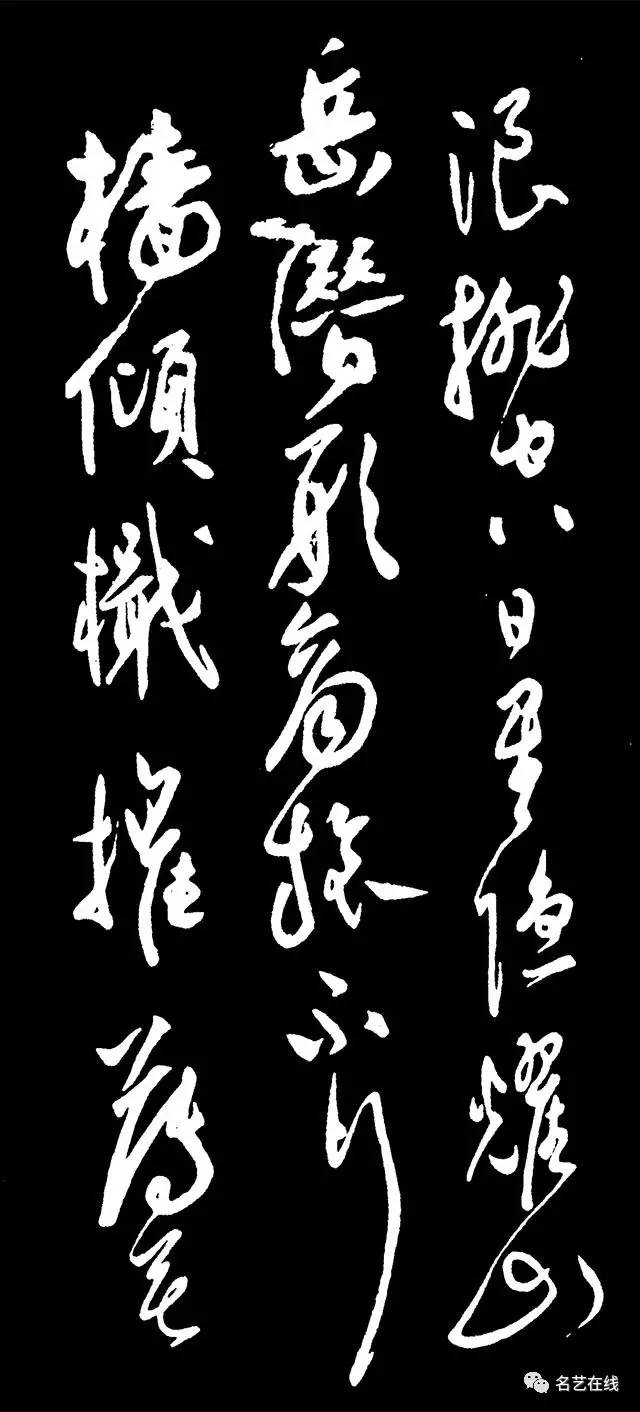 浪排空日星隱耀山
岳潛形商旅不行
檣傾檝摧薄暮
名艺在线